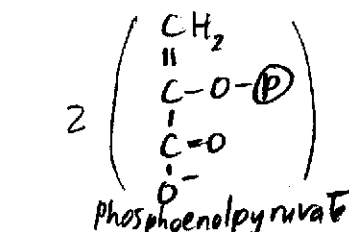 CH₂
||
2 C-O-Ⓟ
|
C=O
|
O⁻
phosphoenolpyruvate